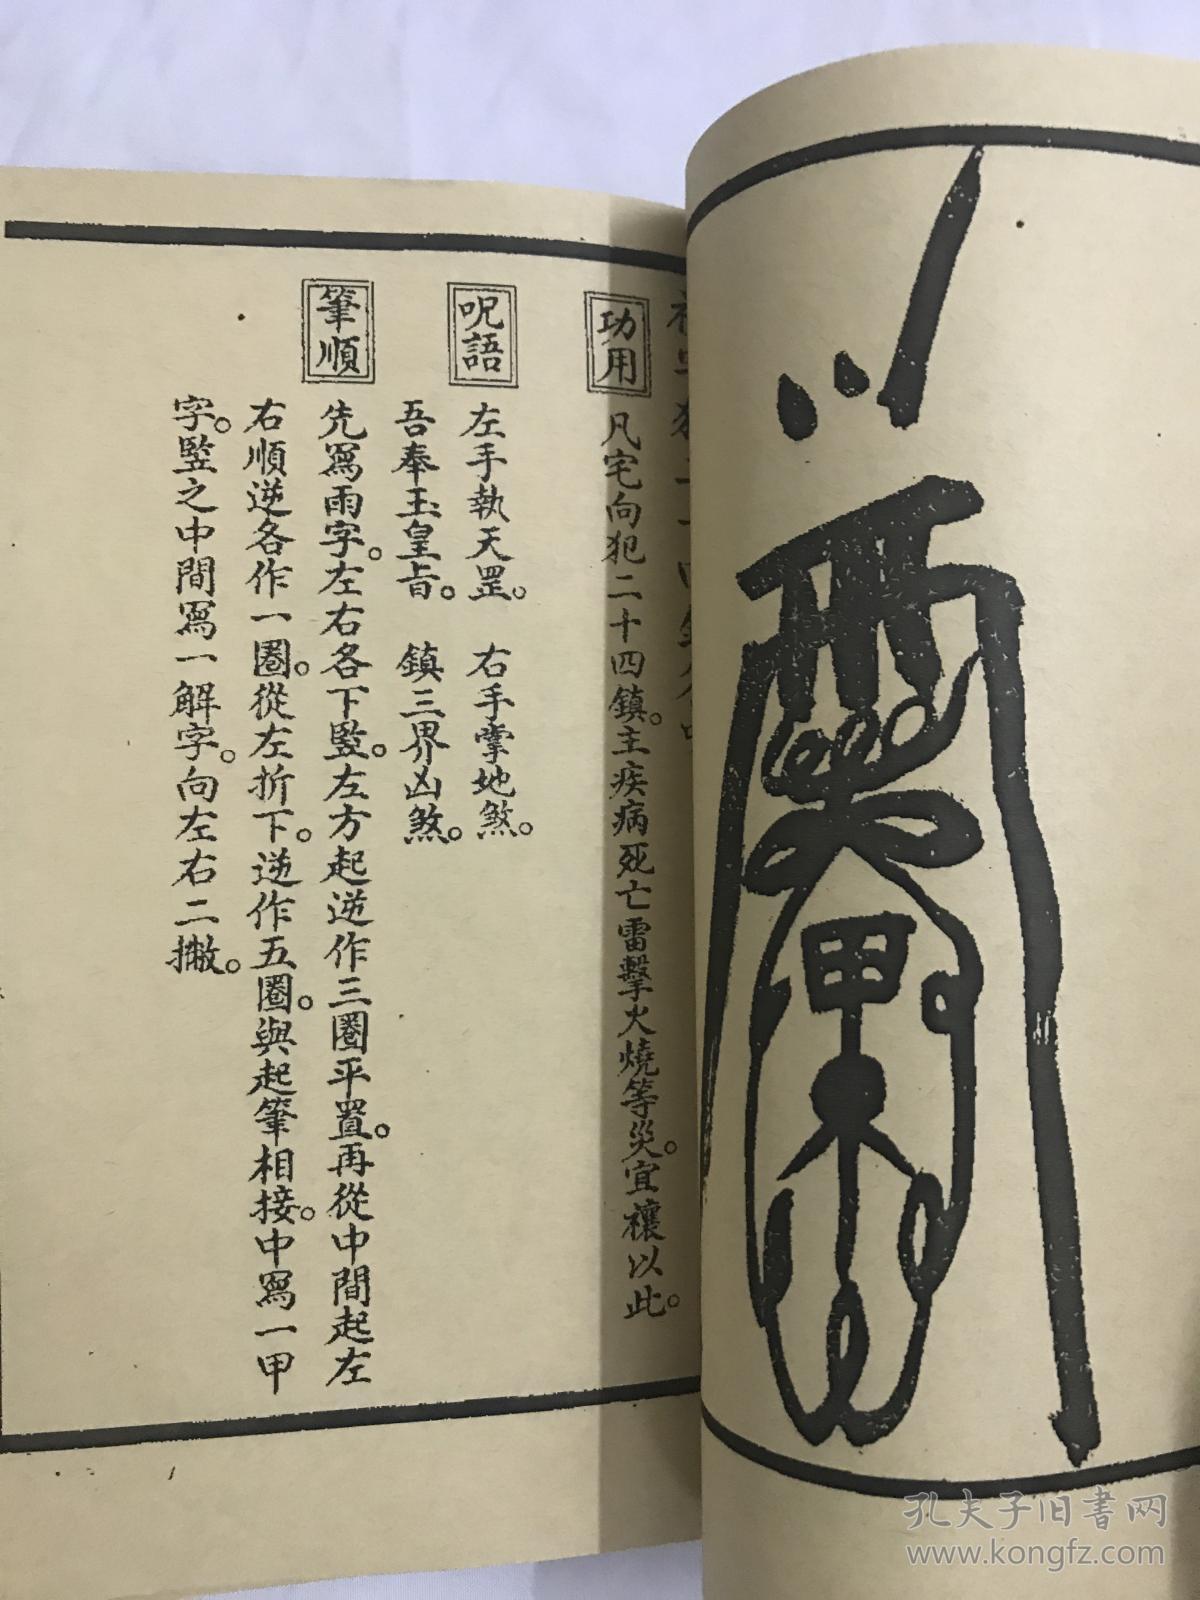 功用
凡宅向犯二十四鎮。主疾病死亡雷擊火燒等災。宜禳以此。
呪語
左手執天罡。 右手擎地煞。
吾奉玉皇旨。 鎮三界凶煞。
筆順
先寫雨字。左右各下竪。左方起逆作三圈平置。再從中間起左
右順逆各作一圈。從左折下。逆作五圈。與起筆相接。中寫一甲
字。竪之中間寫一解字。向左右二撇。
孔夫子旧书网
www.kongfz.com